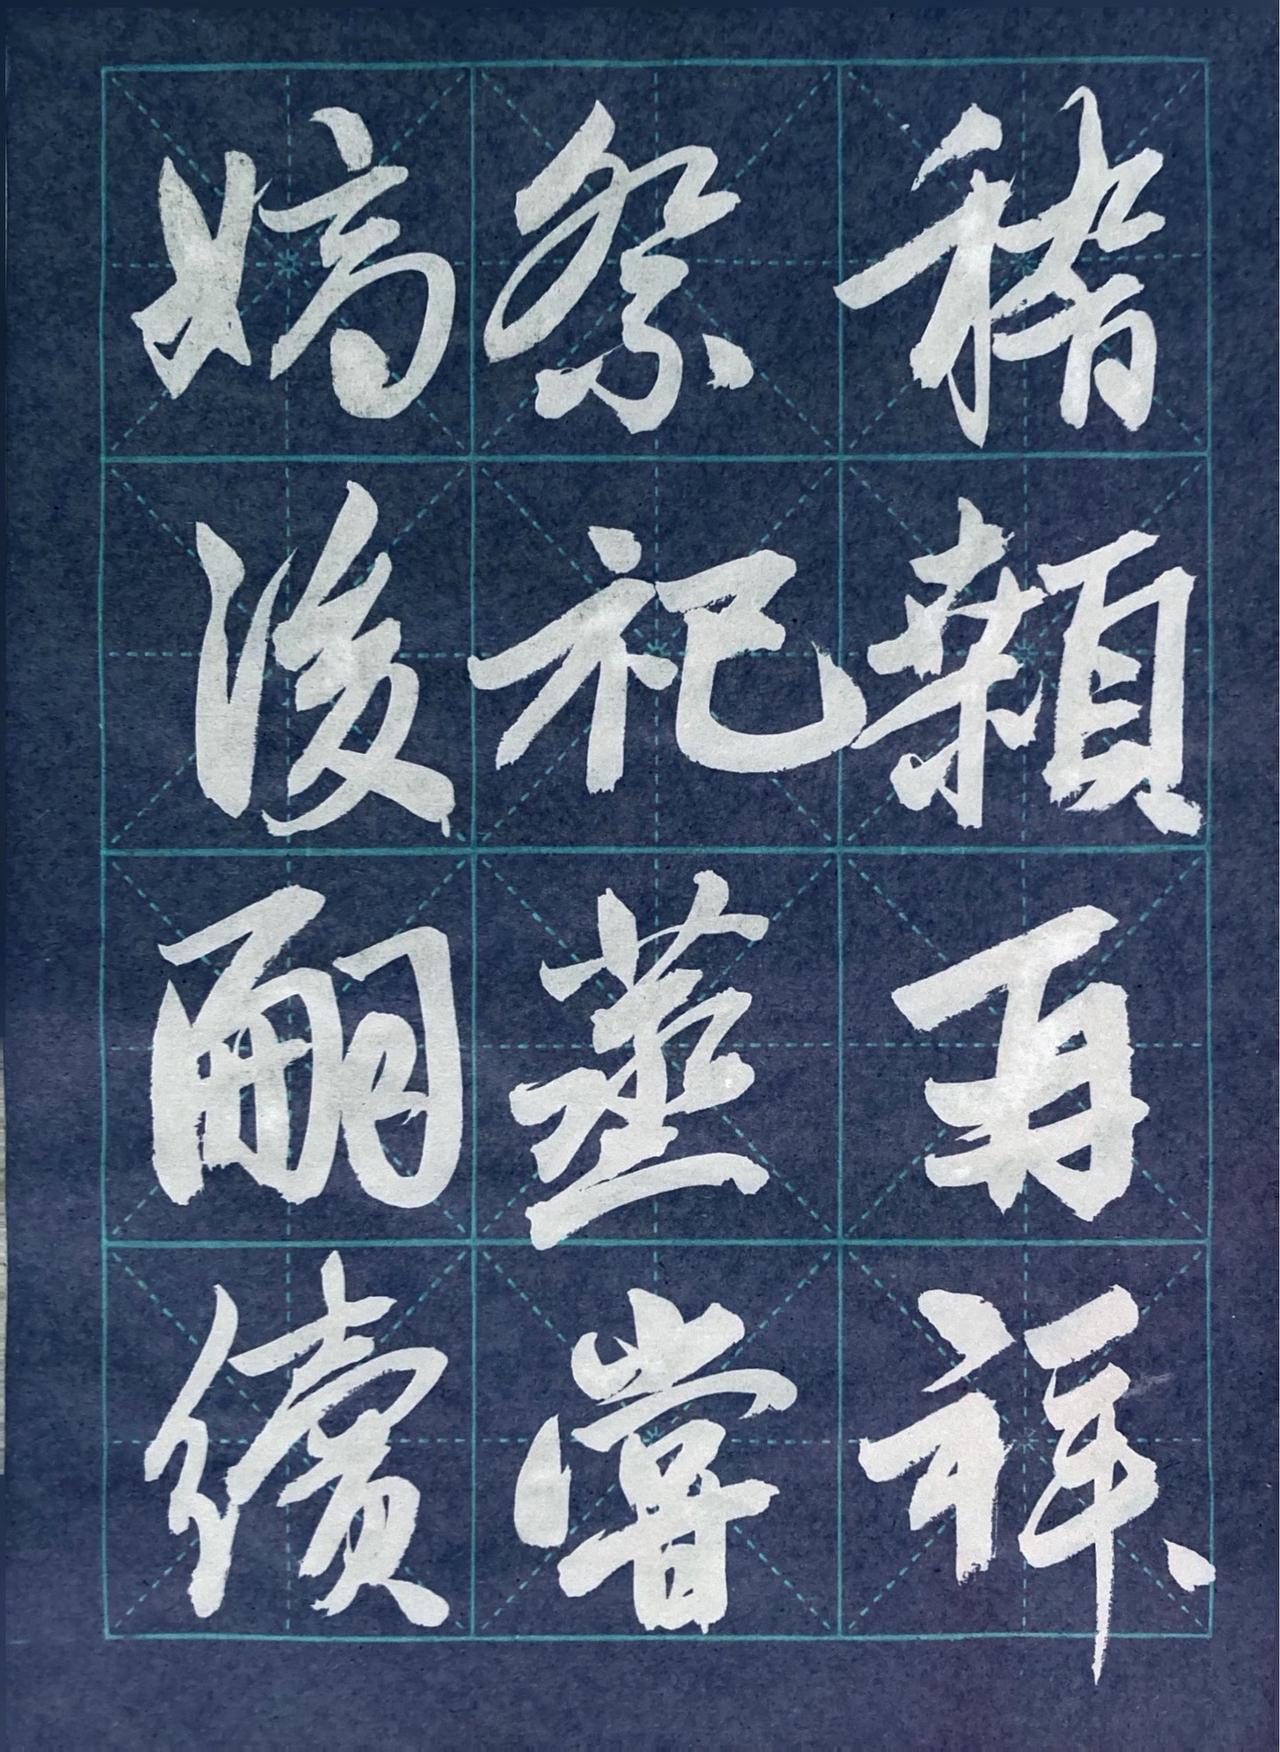 嫡後嗣續
祭祀蒸嘗
稽顙再拜